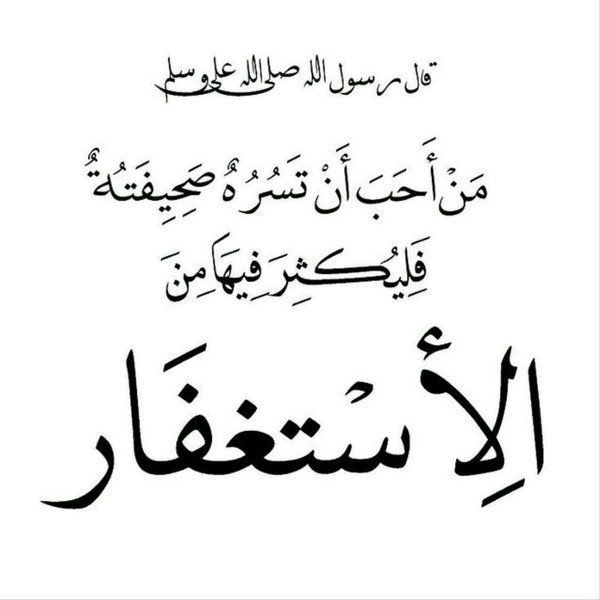 قال رسول الله صلى الله علي وسلم
مَنْ أَحَبَ أَنْ تَسُرُهُ صَحِيِفَتُهٌ
فَلِيُكثِرَ فِيهَا مِنَ
الِأسْتغفَار